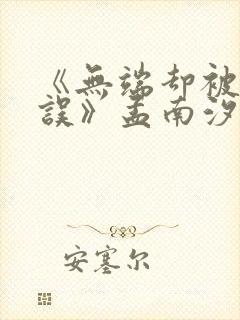 《無端却被
誤》孟南汐
安塞尔